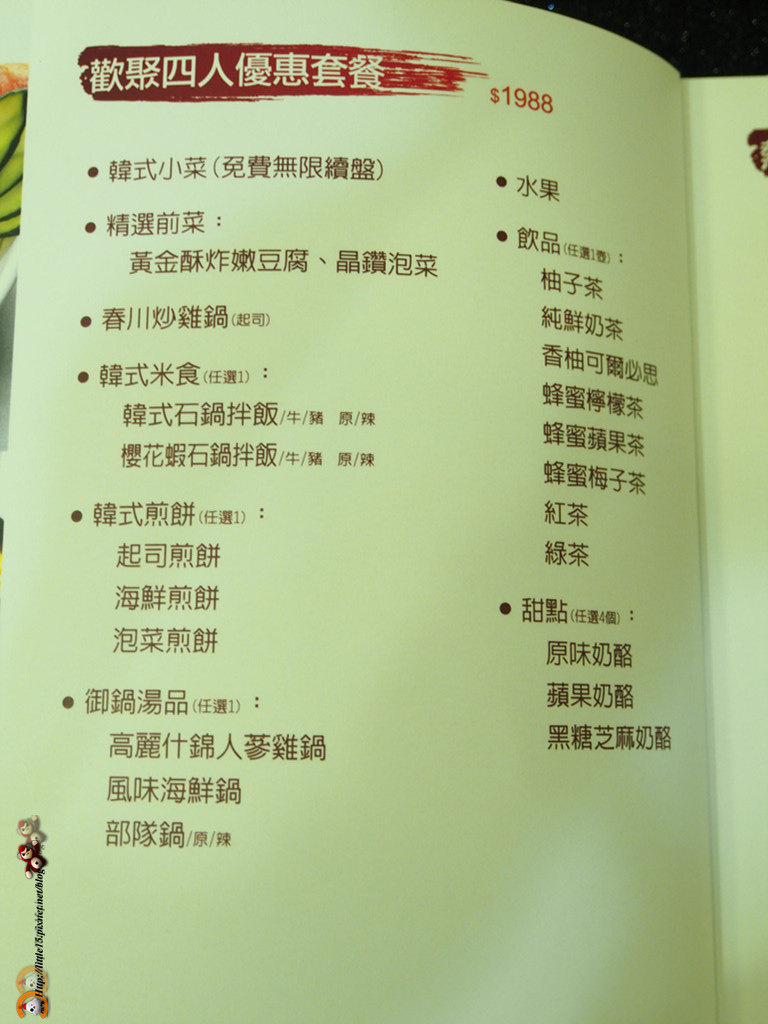 歡聚四人優惠套餐 $1988
• 韓式小菜(免費無限續盤)
• 精選前菜：
黃金酥炸嫩豆腐、晶鑽泡菜
• 春川炒雞鍋(起司)
• 韓式米食(任選1)：
韓式石鍋拌飯/牛/豬 原/辣
櫻花蝦石鍋拌飯/牛/豬 原/辣
• 韓式煎餅(任選1)：
起司煎餅
海鮮煎餅
泡菜煎餅
• 御鍋湯品(任選1)：
高麗什錦人蔘雞鍋
風味海鮮鍋
部隊鍋/原/辣
• 水果
• 飲品(任選1壺)：
柚子茶
純鮮奶茶
香柚可爾必思
蜂蜜檸檬茶
蜂蜜蘋果茶
蜂蜜梅子茶
紅茶
綠茶
• 甜點(任選4個)：
原味奶酪
蘋果奶酪
黑糖芝麻奶酪